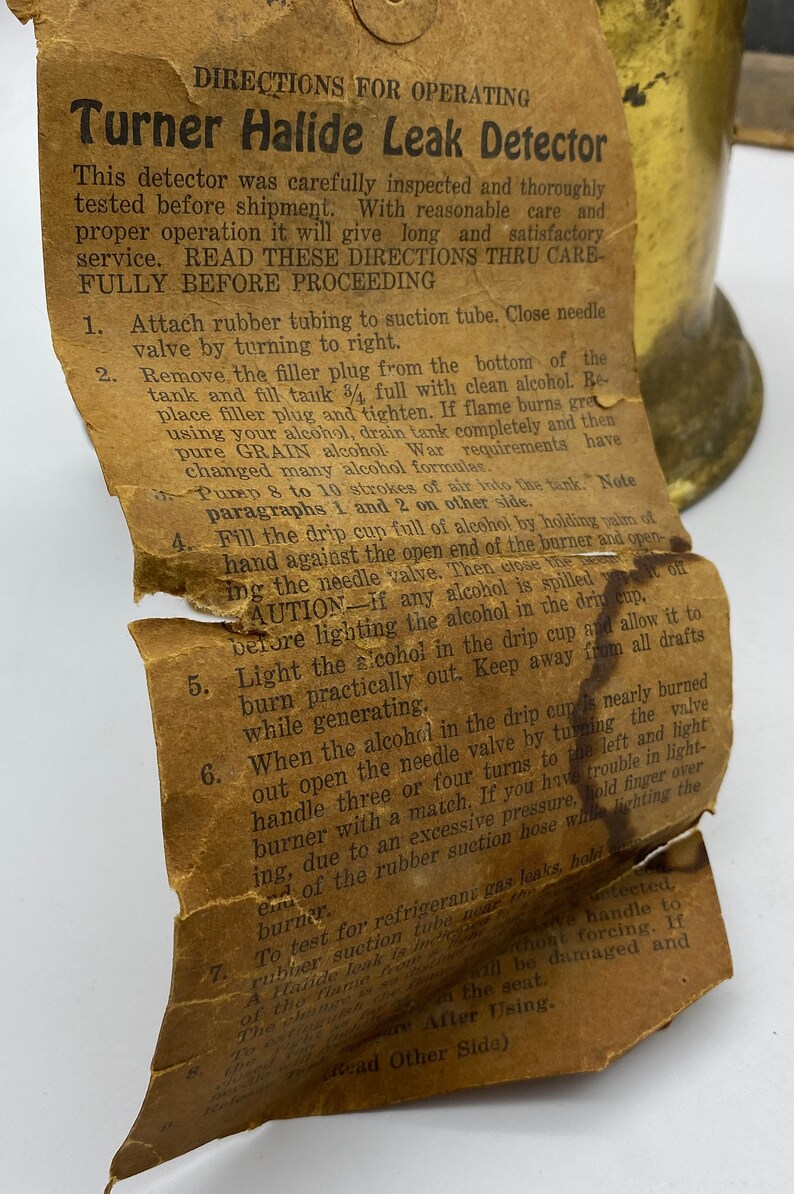 DIRECTIONS FOR OPERATING
Turner Halide Leak Detector
This detector was carefully inspected and thoroughly
tested before shipment. With reasonable care and
proper operation it will give long and satisfactory
service. READ THESE DIRECTIONS THRU CARE-
FULLY BEFORE PROCEEDING
1. Attach rubber tubing to suction tube. Close needle
valve by turning to right.
2. Remove the filler plug from the bottom of the
tank and fill tank 3/4 full with clean alcohol. Re-
place filler plug and tighten. If flame burns green
using your alcohol, drain tank completely and then
pure GRAIN alcohol. War requirements have
changed many alcohol formulas.
3. Pump 8 to 10 strokes of air into the tank. Note
paragraphs 1 and 2 on other side.
4. Fill the drip cup full of alcohol by holding palm of
hand against the open end of the burner and open-
ing the needle valve. Then close the needle
AUTION—If any alcohol is spilled wipe it off
before lighting the alcohol in the drip cup.
5. Light the alcohol in the drip cup and allow it to
burn practically out. Keep away from all drafts
while generating.
6. When the alcohol in the drip cup is nearly burned
out open the needle valve by turning the valve
handle three or four turns to the left and light
burner with a match. If you have trouble in light-
ing, due to an excessive pressure, hold finger over
end of the rubber suction hose while lighting the
burner.
7. To test for refrigerant gas leaks, hold
rubber suction tube near the detected.
A Halide leak is
of the flame from
The change is so
8. To extinguish the handle to
without forcing. If
needle will be damaged and
in the seat.
Release After Using.
(Read Other Side)